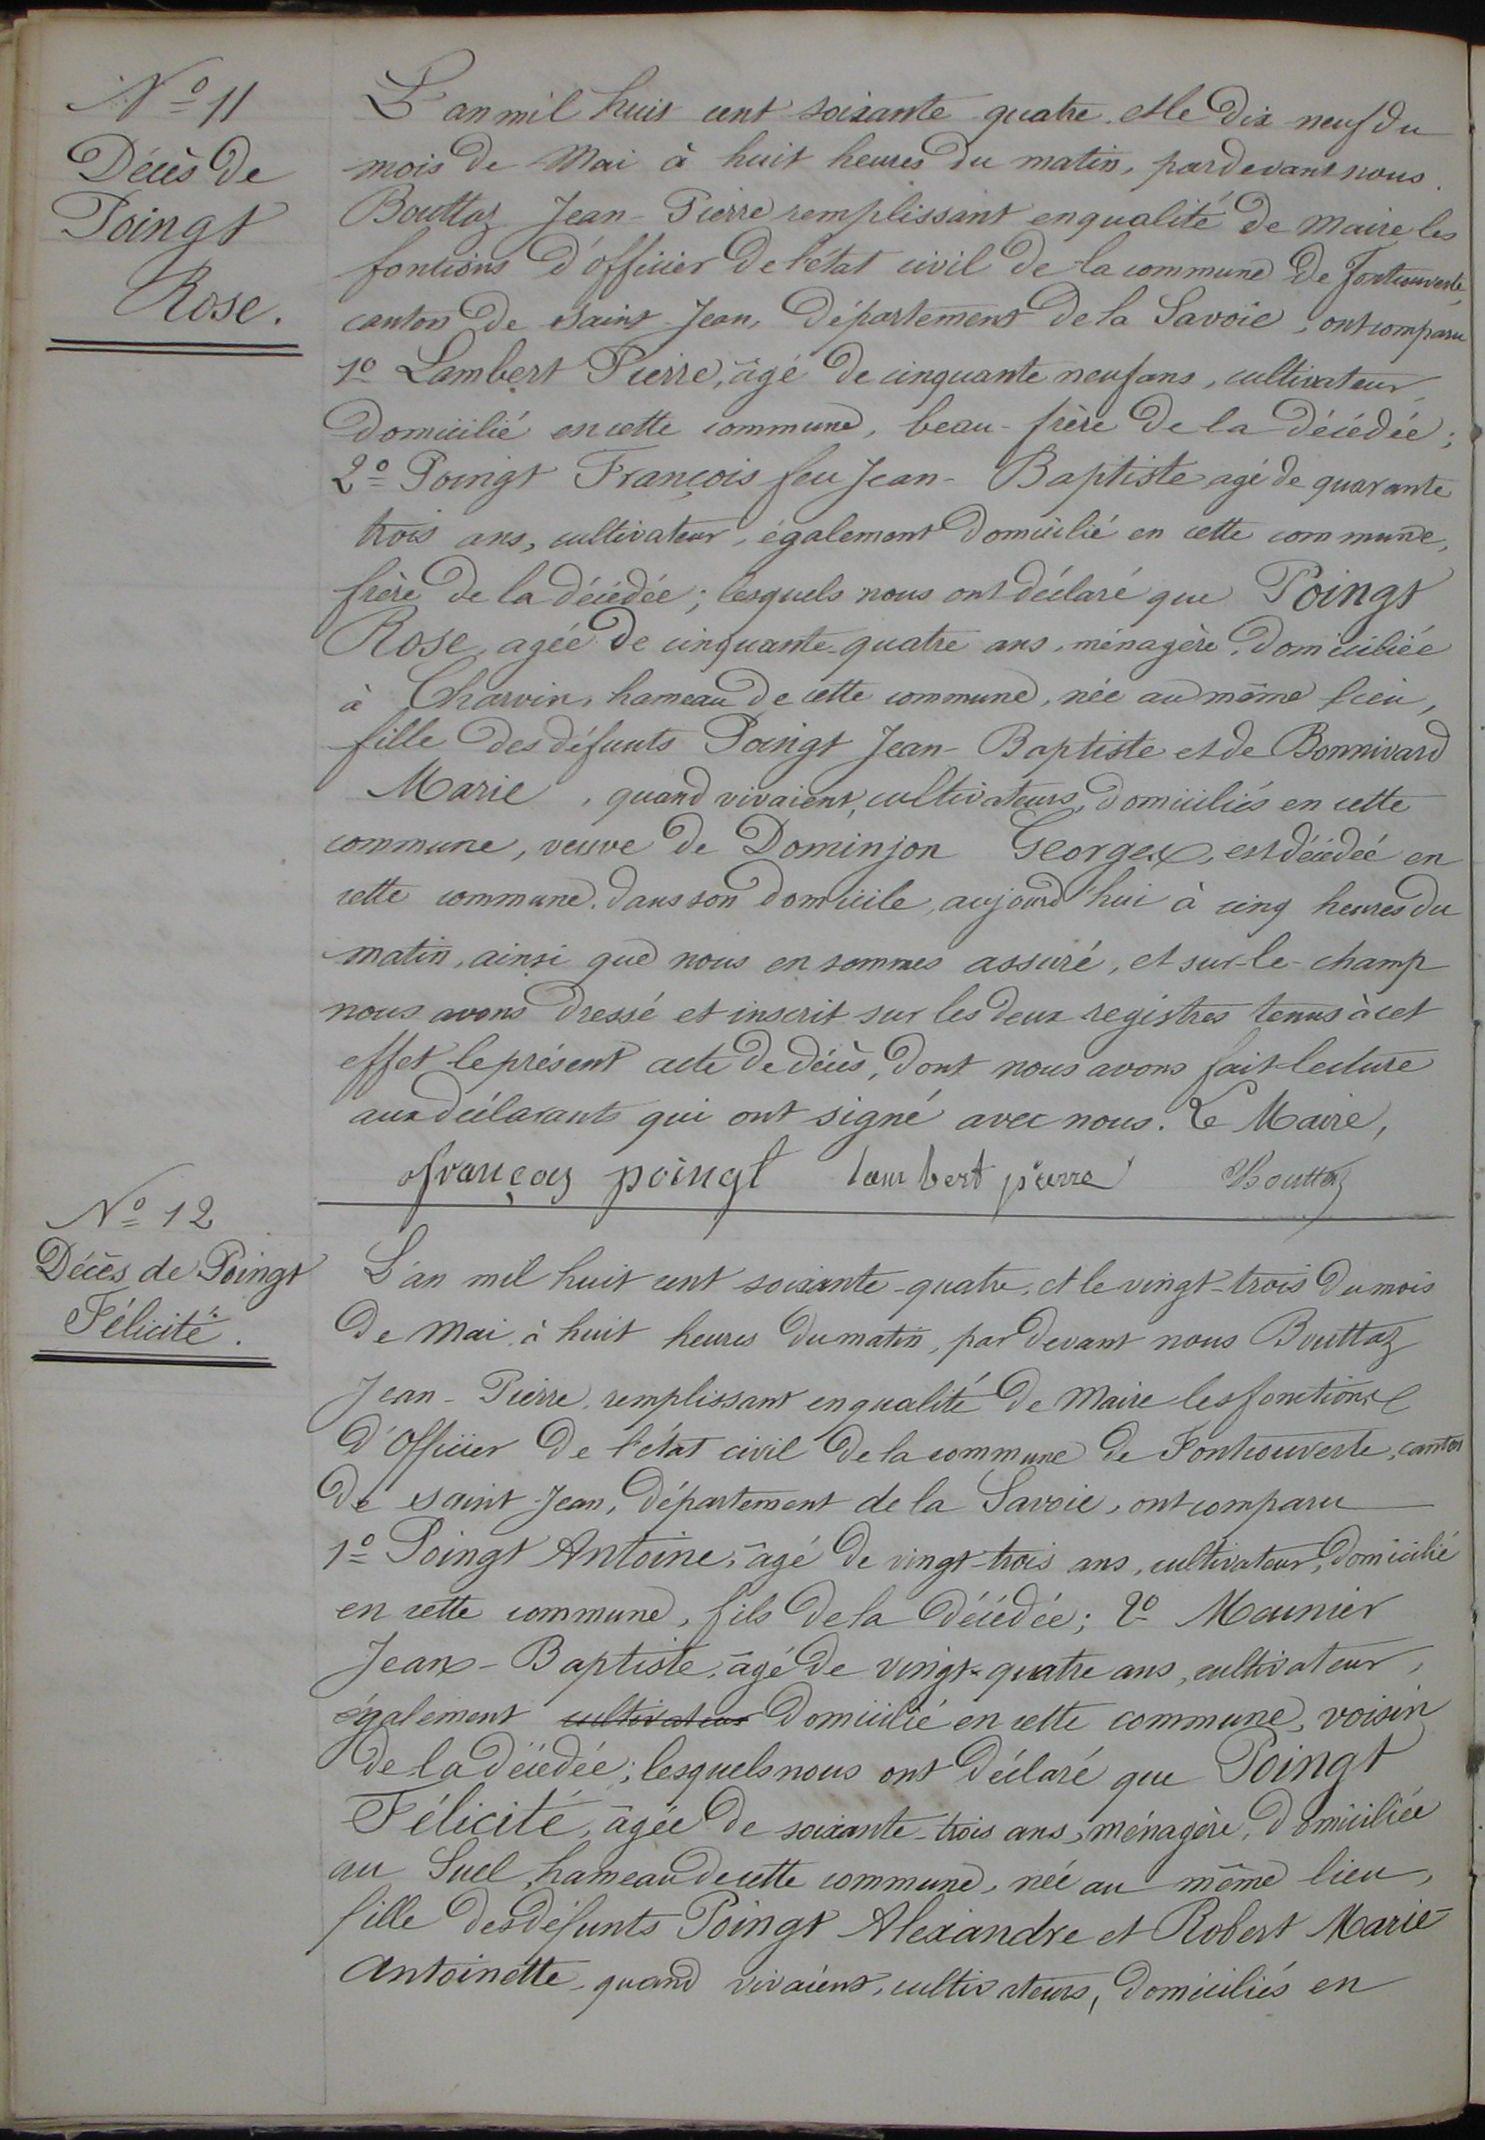 Nº 11
Décès de
Poingt
Rose.
L'an mil huit cent soixante quatre et le dix neuf du
mois de Mai à huit heures du matin, pardevant nous
Bouttaz Jean-Pierre remplissant en qualité de Maire les
fontions d'officier de l'état civil de la commune de Fontcouverte,
canton de saint Jean, département de la Savoie, ont comparu
1º Lambert Pierre, âgé de cinquante neuf ans, cultivateur
domicilié en cette commune, beau-frère de la décédée;
2º Poingt François feu Jean-Baptiste agé de quarante
trois ans, cultivateur, également domicilié en cette commune,
frère de la décédée; lesquels nous ont déclaré que Poingt
Rose, agée de cinquante-quatre ans, ménagère, domiciliée
à Charvin, hameau de cette commune, née au même lieu,
fille des défunts Poingt Jean-Baptiste et de Bonnivard
Marie, quand vivaient, cultivateurs, domiciliés en cette
commune, veuve de Dominjon Georges, est décédée en
cette commune, dans son domicile, aujourd'hui à cinq heures du
matin, ainsi que nous en sommes assuré, et sur-le-champ
nous avons dressé et inscrit sur les deux registres tenus à cet
effet le présent acte de décès, dont nous avons fait lecture
aux déclarants qui ont signé avec nous. Le Maire,
françois poingt lambert pierre Bouttaz
Nº 12
Décès de Poingt
Félicité.
L'an mil huit cent soixante-quatre, et le vingt-trois du mois
de Mai à huit heures du matin, par devant nous Bouttaz
Jean-Pierre, remplissant en qualité de Maire les fonctions
d'Officier de l'état civil de la commune de Fontcouverte, canton
de saint Jean, département de la Savoie, ont comparu
1º Poingt Antoine, âgé de vingt-trois ans, cultivateur, domicilié
en cette commune, fils de la décédée; 2º Mounier
Jean-Baptiste, âgé de vingt-quatre ans, cultivateur,
également cultivateur domicilié en cette commune, voisin
de la décédée; lesquels nous ont déclaré que Poingt
Félicité, âgée de soixante-trois ans, ménagère, domiciliée
au Suel, hameau de cette commune, née au même lieu,
fille des défunts Poingt Alexandre et Robert Marie-
Antoinette, quand vivaient, cultivateurs, domiciliés en